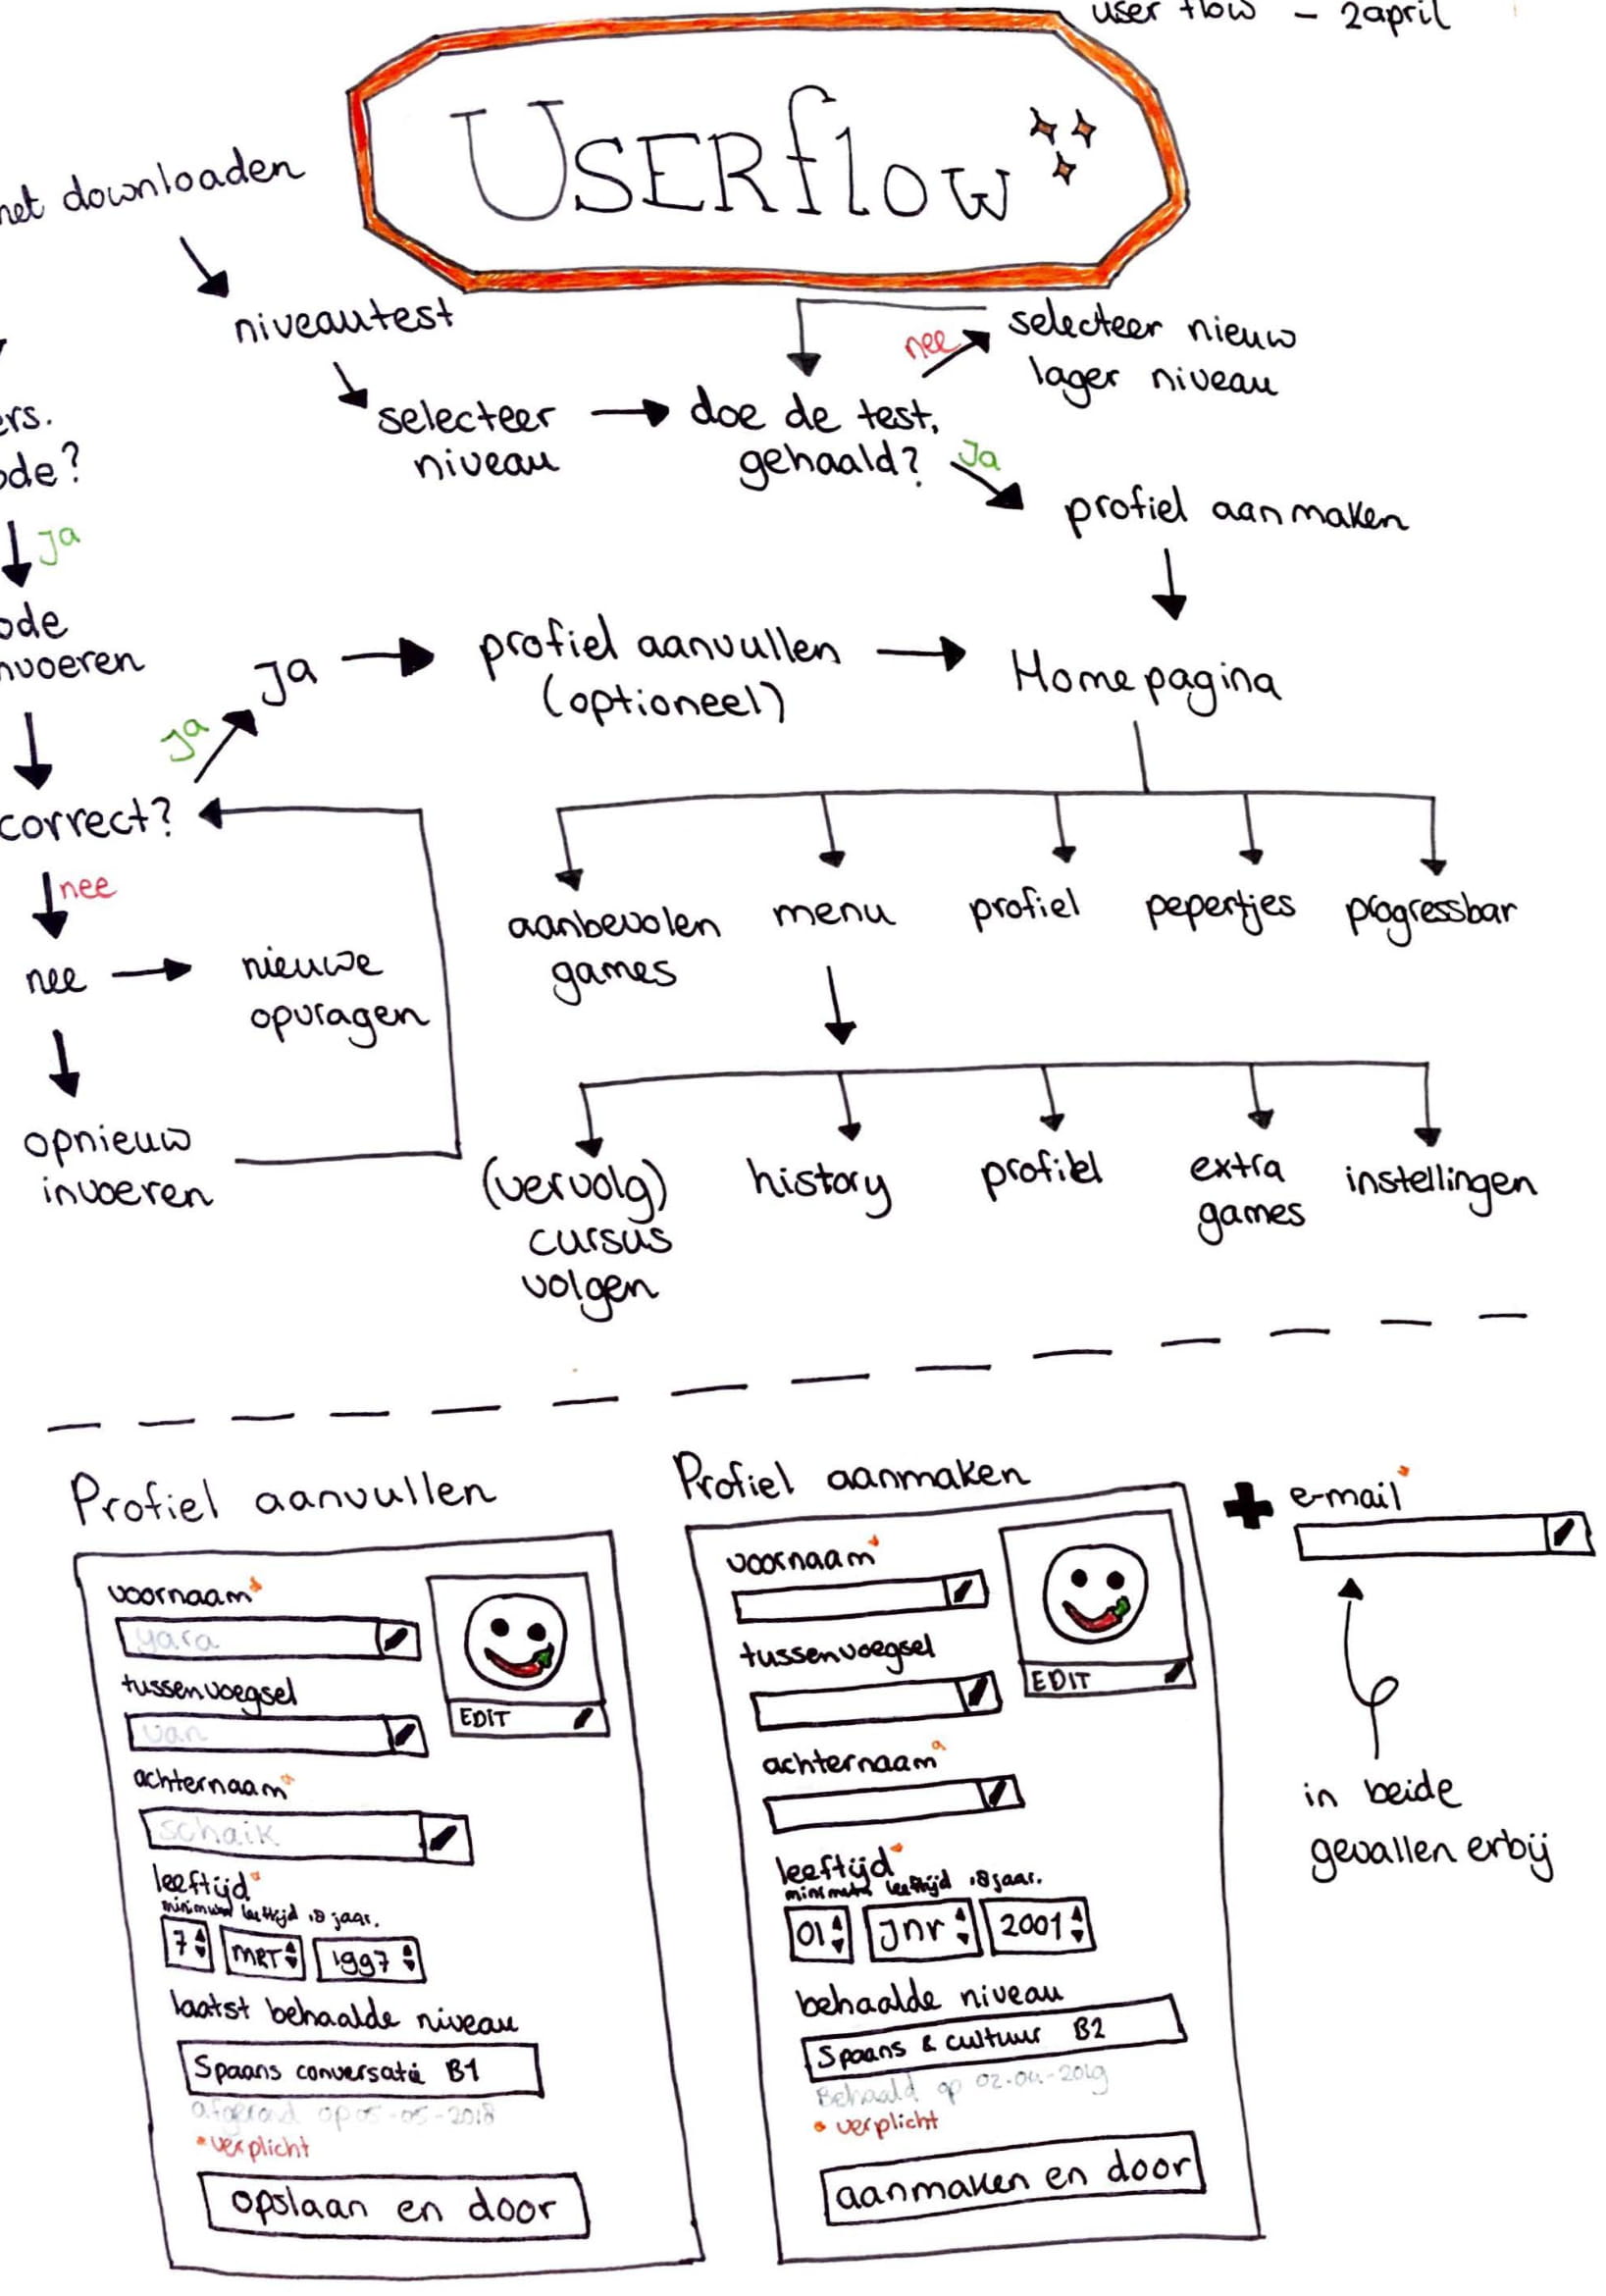 user flow - 2april
USERflow
downloaden
niveautest
selecteer nieuw
lager niveau
nee
selecteer
niveau
doe de test,
gehaald?
Ja
profiel aanmaken
ers.
ode?
ja
ode
nvoeren
ja
Ja
profiel aanvullen
(optioneel)
Homepagina
correct?
nee
nee
nieuwe
opvragen
opnieuw
invoeren
aanbevolen
games
menu
profiel
pepertjes
progressbar
(vervolg)
cursus
volgen
history
profiel
extra
games
instellingen
Profiel aanvullen
voornaam*
yara
tussenvoegsel
van
achternaam*
schaik
EDIT
leeftijd*
minimum leeftijd 18 jaar.
7 MRT 1997
laatst behaalde niveau
Spaans conversatie B1
afgerond op 05-05-2018
*verplicht
opslaan en door
Profiel aanmaken
voornaam*
tussenvoegsel
achternaam*
EDIT
leeftijd*
minimum leeftijd 18 jaar.
01 Jnr 2001
behaalde niveau
Spaans & cultuur B2
Behaald op 02-04-2019
* verplicht
aanmaken en door
+ e-mail*
in beide
gevallen erbij